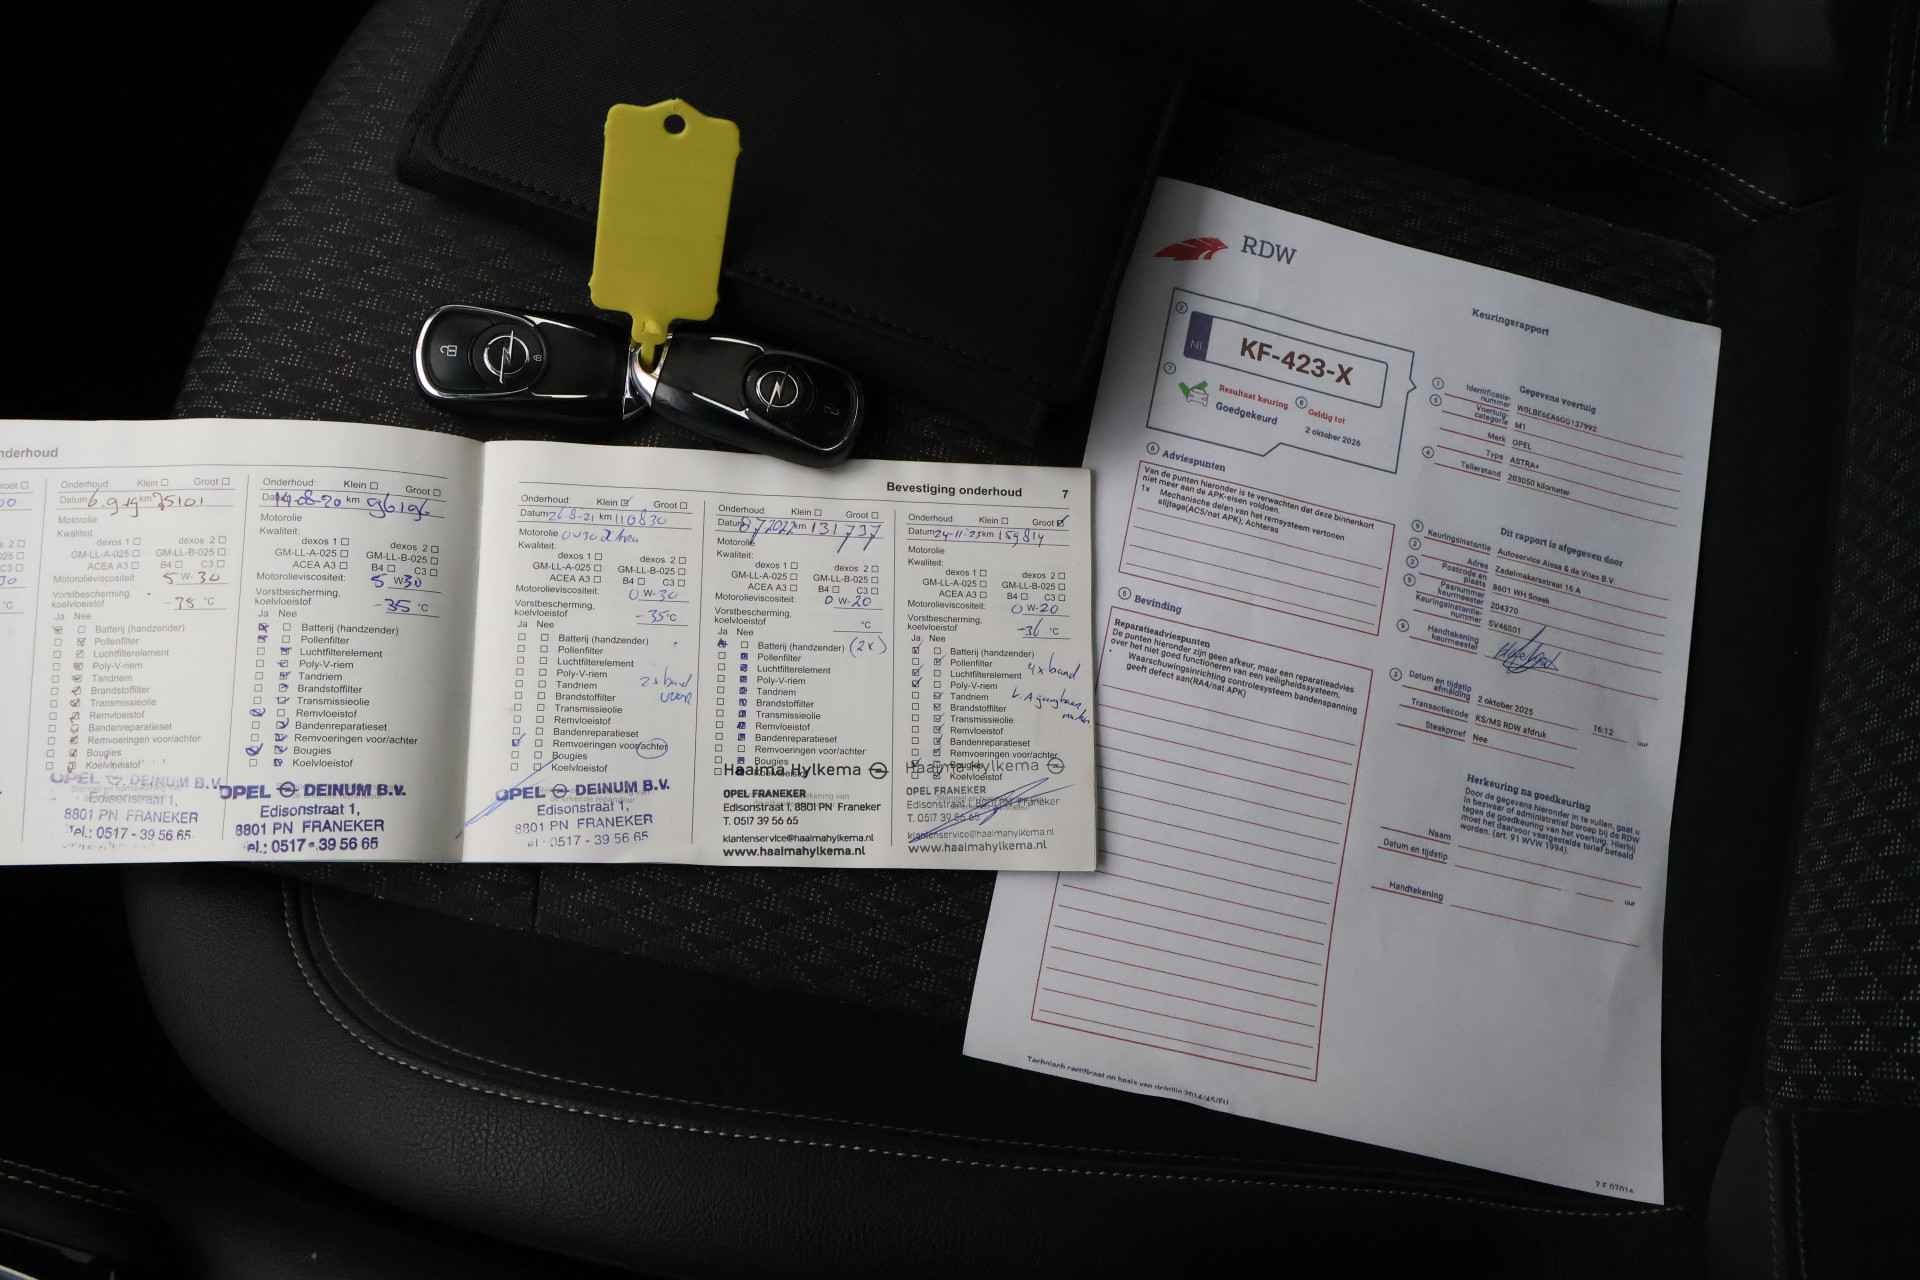 onderhoud
Klein Groot
Datum 6.9.19 km 75101
Motorolie
Kwaliteit:
dexos 1 dexos 2
GM-LL-A-025 GM-LL-B-025
ACEA A3 B4 C3
Motorolieviscositeit: 5 W-30
Vorstbescherming,
koelvloeistof °C
Ja Nee
Batterij (handzender)
Pollenfilter
Luchtfilterelement
Poly-V-riem
Tandriem
Brandstoffilter
Transmissieolie
Remvloeistof
Bandenreparatieset
Remvoeringen voor/achter
Bougies
OPEL DEINUM B.V.
Edisonstraat 1,
8801 PN FRANEKER
Tel.: 0517 - 39 56 65
Onderhoud: Klein Groot
Datum 14-08-20 km 96196
Motorolie
Kwaliteit:
dexos 1 dexos 2
GM-LL-A-025 GM-LL-B-025
ACEA A3 B4 C3
Motorolieviscositeit: 5 W-30
Vorstbescherming,
koelvloeistof -35 °C
Ja Nee
Batterij (handzender)
Pollenfilter
Luchtfilterelement
Poly-V-riem
Tandriem
Brandstoffilter
Transmissieolie
Remvloeistof
Bandenreparatieset
Remvoeringen voor/achter
Bougies
Koelvloeistof
OPEL DEINUM B.V.
Edisonstraat 1,
8801 PN FRANEKER
Tel.: 0517 - 39 56 65
Bevestiging onderhoud 7
Onderhoud: Klein Groot
Datum 26-8-21 km 110830
Motorolie 0W30
Kwaliteit:
dexos 1 dexos 2
GM-LL-A-025 GM-LL-B-025
ACEA A3 B4 C3
Motorolieviscositeit: 0 W-30
Vorstbescherming,
koelvloeistof -35 °C
Ja Nee
Batterij (handzender)
Pollenfilter
Luchtfilterelement
Poly-V-riem
Tandriem 2x band
Brandstoffilter
Transmissieolie
Remvloeistof
Bandenreparatieset
Remvoeringen voor/achter
Bougies
Koelvloeistof
OPEL DEINUM B.V.
Edisonstraat 1,
8801 PN FRANEKER
Tel.: 0517 - 39 56 65
Onderhoud: Klein Groot
Datum 8/7 2022 km 131737
Motorolie
Kwaliteit:
dexos 1 dexos 2
GM-LL-A-025 GM-LL-B-025
ACEA A3 B4 C3
Motorolieviscositeit: 0 W-20
Vorstbescherming,
koelvloeistof °C
Ja Nee
Batterij (handzender) (2x)
Pollenfilter
Luchtfilterelement
Poly-V-riem
Tandriem
Brandstoffilter
Transmissieolie
Remvloeistof
Bandenreparatieset
Remvoeringen voor/achter
Haaima Hylkema
OPEL FRANEKER
Edisonstraat 1, 8801 PN Franeker
T. 0517 39 56 65
klantenservice@haaimahylkema.nl
www.haaimahylkema.nl
Onderhoud: Klein Groot
Datum 24-11-23 km 159814
Motorolie
Kwaliteit:
dexos 1 dexos 2
GM-LL-A-025 GM-LL-B-025
ACEA A3 B4 C3
Motorolieviscositeit: 0 W-20
Vorstbescherming,
koelvloeistof -36 °C
Ja Nee
Batterij (handzender)
Pollenfilter 4x band
Luchtfilterelement
Poly-V-riem
Tandriem
Brandstoffilter
Transmissieolie
Remvloeistof
Bandenreparatieset
Remvoeringen voor/achter
Bougies
Koelvloeistof
Haaima Hylkema
OPEL FRANEKER
Edisonstraat 1, 8801 PN Franeker
T. 0517 39 56 65
klantenservice@haaimahylkema.nl
www.haaimahylkema.nl
RDW
Keuringsrapport
2
NL KF-423-X
7 Resultaat keuring 8 Geldig tot
Goedgekeurd 2 oktober 2026
6 Adviespunten
Van de punten hieronder is te verwachten dat deze binnenkort
niet meer aan de APK-eisen voldoen.
1x Mechanische delen van het remsysteem vertonen
slijtage(AC5/nat APK); Achteras
6 Bevinding
Reparatieadviespunten
De punten hieronder zijn geen afkeur, maar een reparatieadvies
over het niet goed functioneren van een veiligheidssysteem.
• Waarschuwingsinrichting controlesysteem bandenspanning
geeft defect aan(RA4/nat APK)
Gegevens voertuig
1 Identificatie-
nummer W0LBE6EA6GG137992
5 Voertuig-
categorie M1
Merk OPEL
Type ASTRA+
4 Tellerstand 203050 kilometer
Dit rapport is afgegeven door
9 Keuringsinstantie Autoservice Aissa & de Vries B.V.
3 Adres Zadelmakersstraat 16 A
3 Postcode en
plaats 8601 WH Sneek
9 Pasnummer
keurmeester 204370
Keuringsinstantie-
nummer SV46601
9 Handtekening
keurmeester
3 Datum en tijdstip
afmelding 2 oktober 2025 16:12 uur
Transactiecode KS/MS RDW afdruk
Steekproef Nee
Herkeuring na goedkeuring
Door de gegevens hieronder in te vullen, gaat u
in bezwaar of administratief beroep bij de RDW
tegen de goedkeuring van het voertuig. Hierbij
moet het daarvoor vastgestelde tarief betaald
worden. (art. 91 WVW 1994).
Naam
Datum en tijdstip uur
Handtekening
Technisch certificaat op basis van richtlijn 2014/45/EU